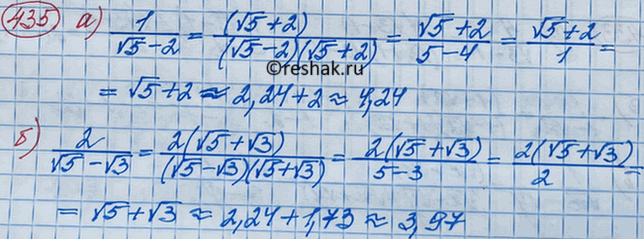 435 а) 1/(√5-2) = (√5+2)/((√5-2)(√5+2)) = (√5+2)/(5-4) = (√5+2)/1 =
©reshak.ru
= √5+2 ≈ 2,24+2 ≈ 4,24
б) 2/(√5-√3) = 2(√5+√3)/((√5-√3)(√5+√3)) = 2(√5+√3)/(5-3) = 2(√5+√3)/2 =
= √5+√3 ≈ 2,24+1,73 ≈ 3,97